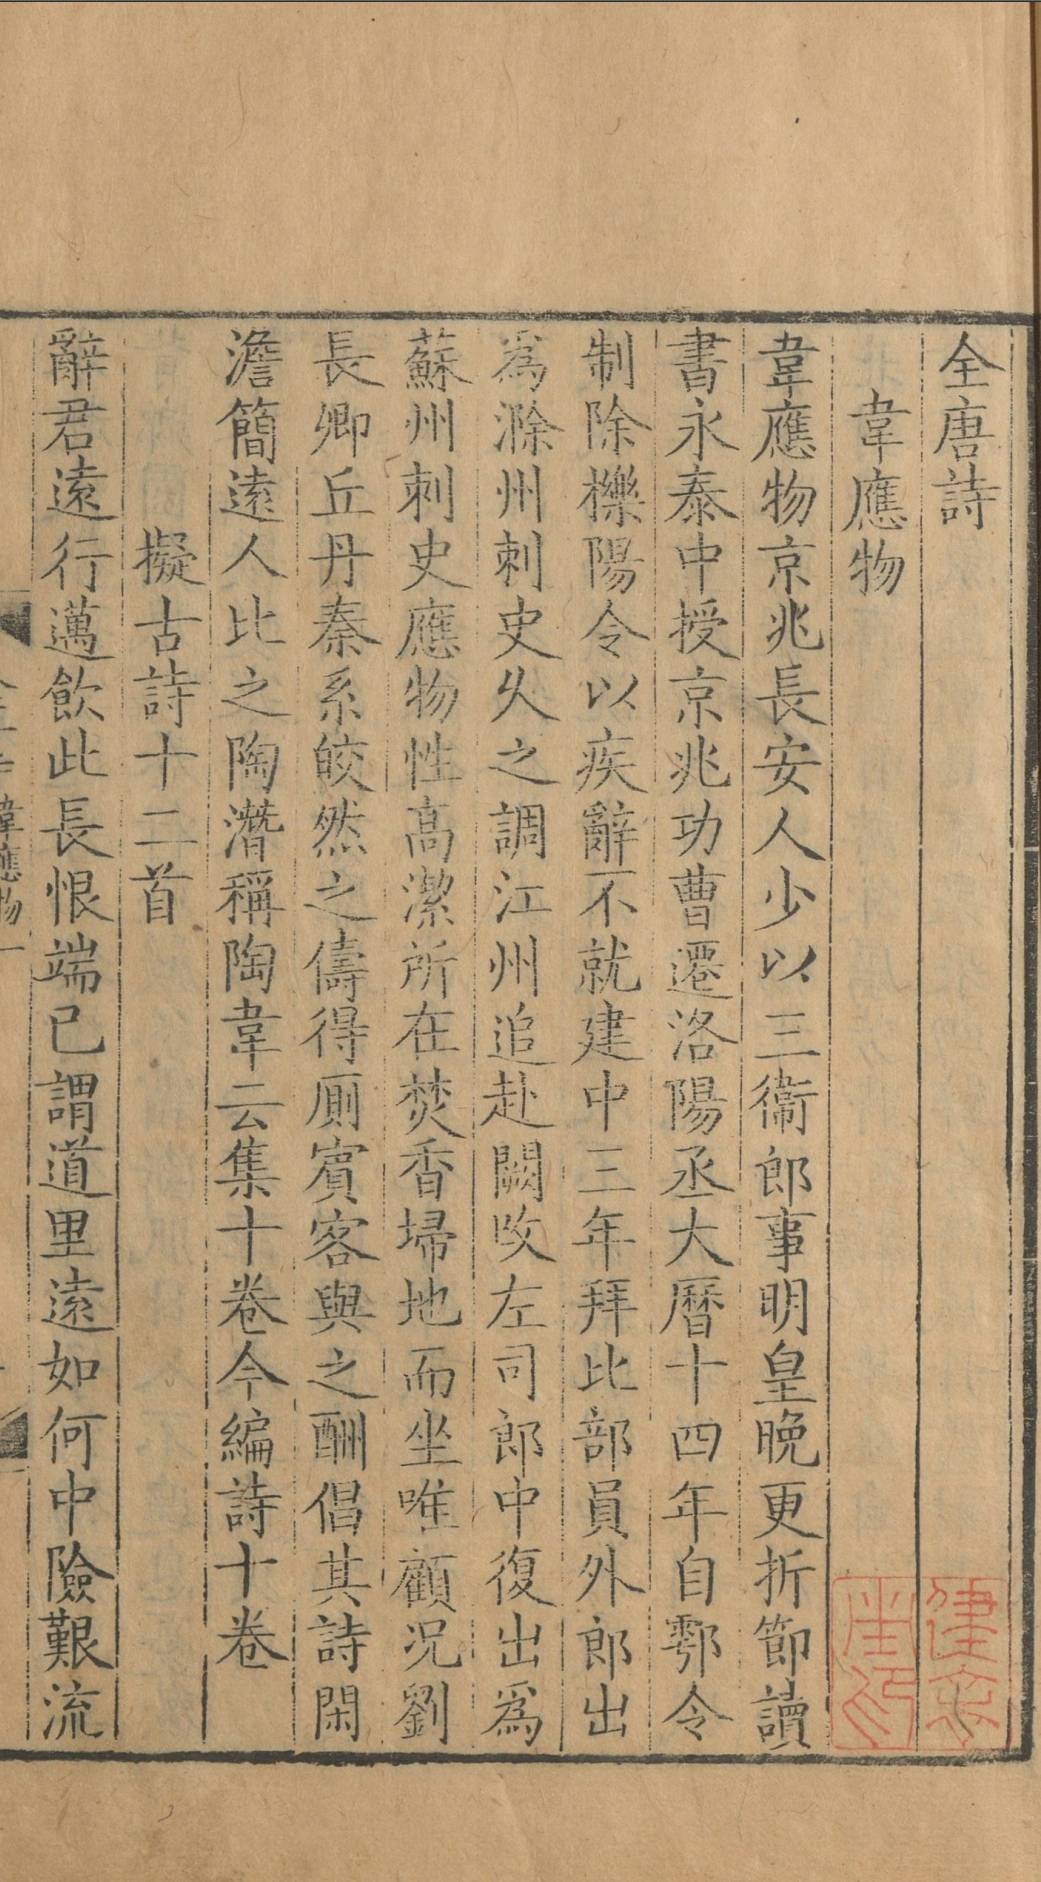 全唐詩
韋應物
韋應物京兆長安人少以三衞郎事明皇晚更折節讀
書永泰中授京兆功曹遷洛陽丞大曆十四年自鄠令
制除櫟陽令以疾辭不就建中三年拜比部員外郎出
爲滁州刺史久之調江州追赴闕改左司郎中復出爲
蘇州刺史應物性高潔所在焚香埽地而坐唯顧况劉
長卿丘丹秦系皎然之儔得廁賓客與之酬倡其詩閑
澹簡遠人比之陶潛稱陶韋云集十卷今編詩十卷
擬古詩十二首
辭君遠行邁飲此長恨端已謂道里遠如何中險艱流
韋應物一